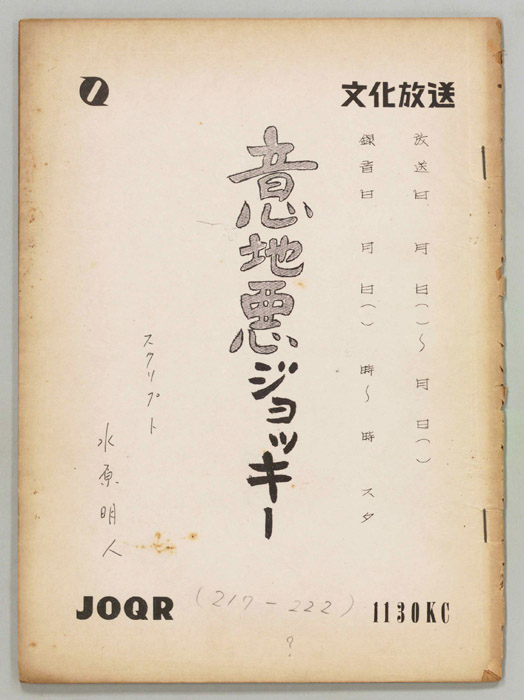 文化放送
放送日 月 日( )~ 月 日( )
録音日 月 日( ) 時~ 時 スタ
意地悪ジョッキー
スクリプト
水原明人
JOQR
(217-222)
?
1130KC